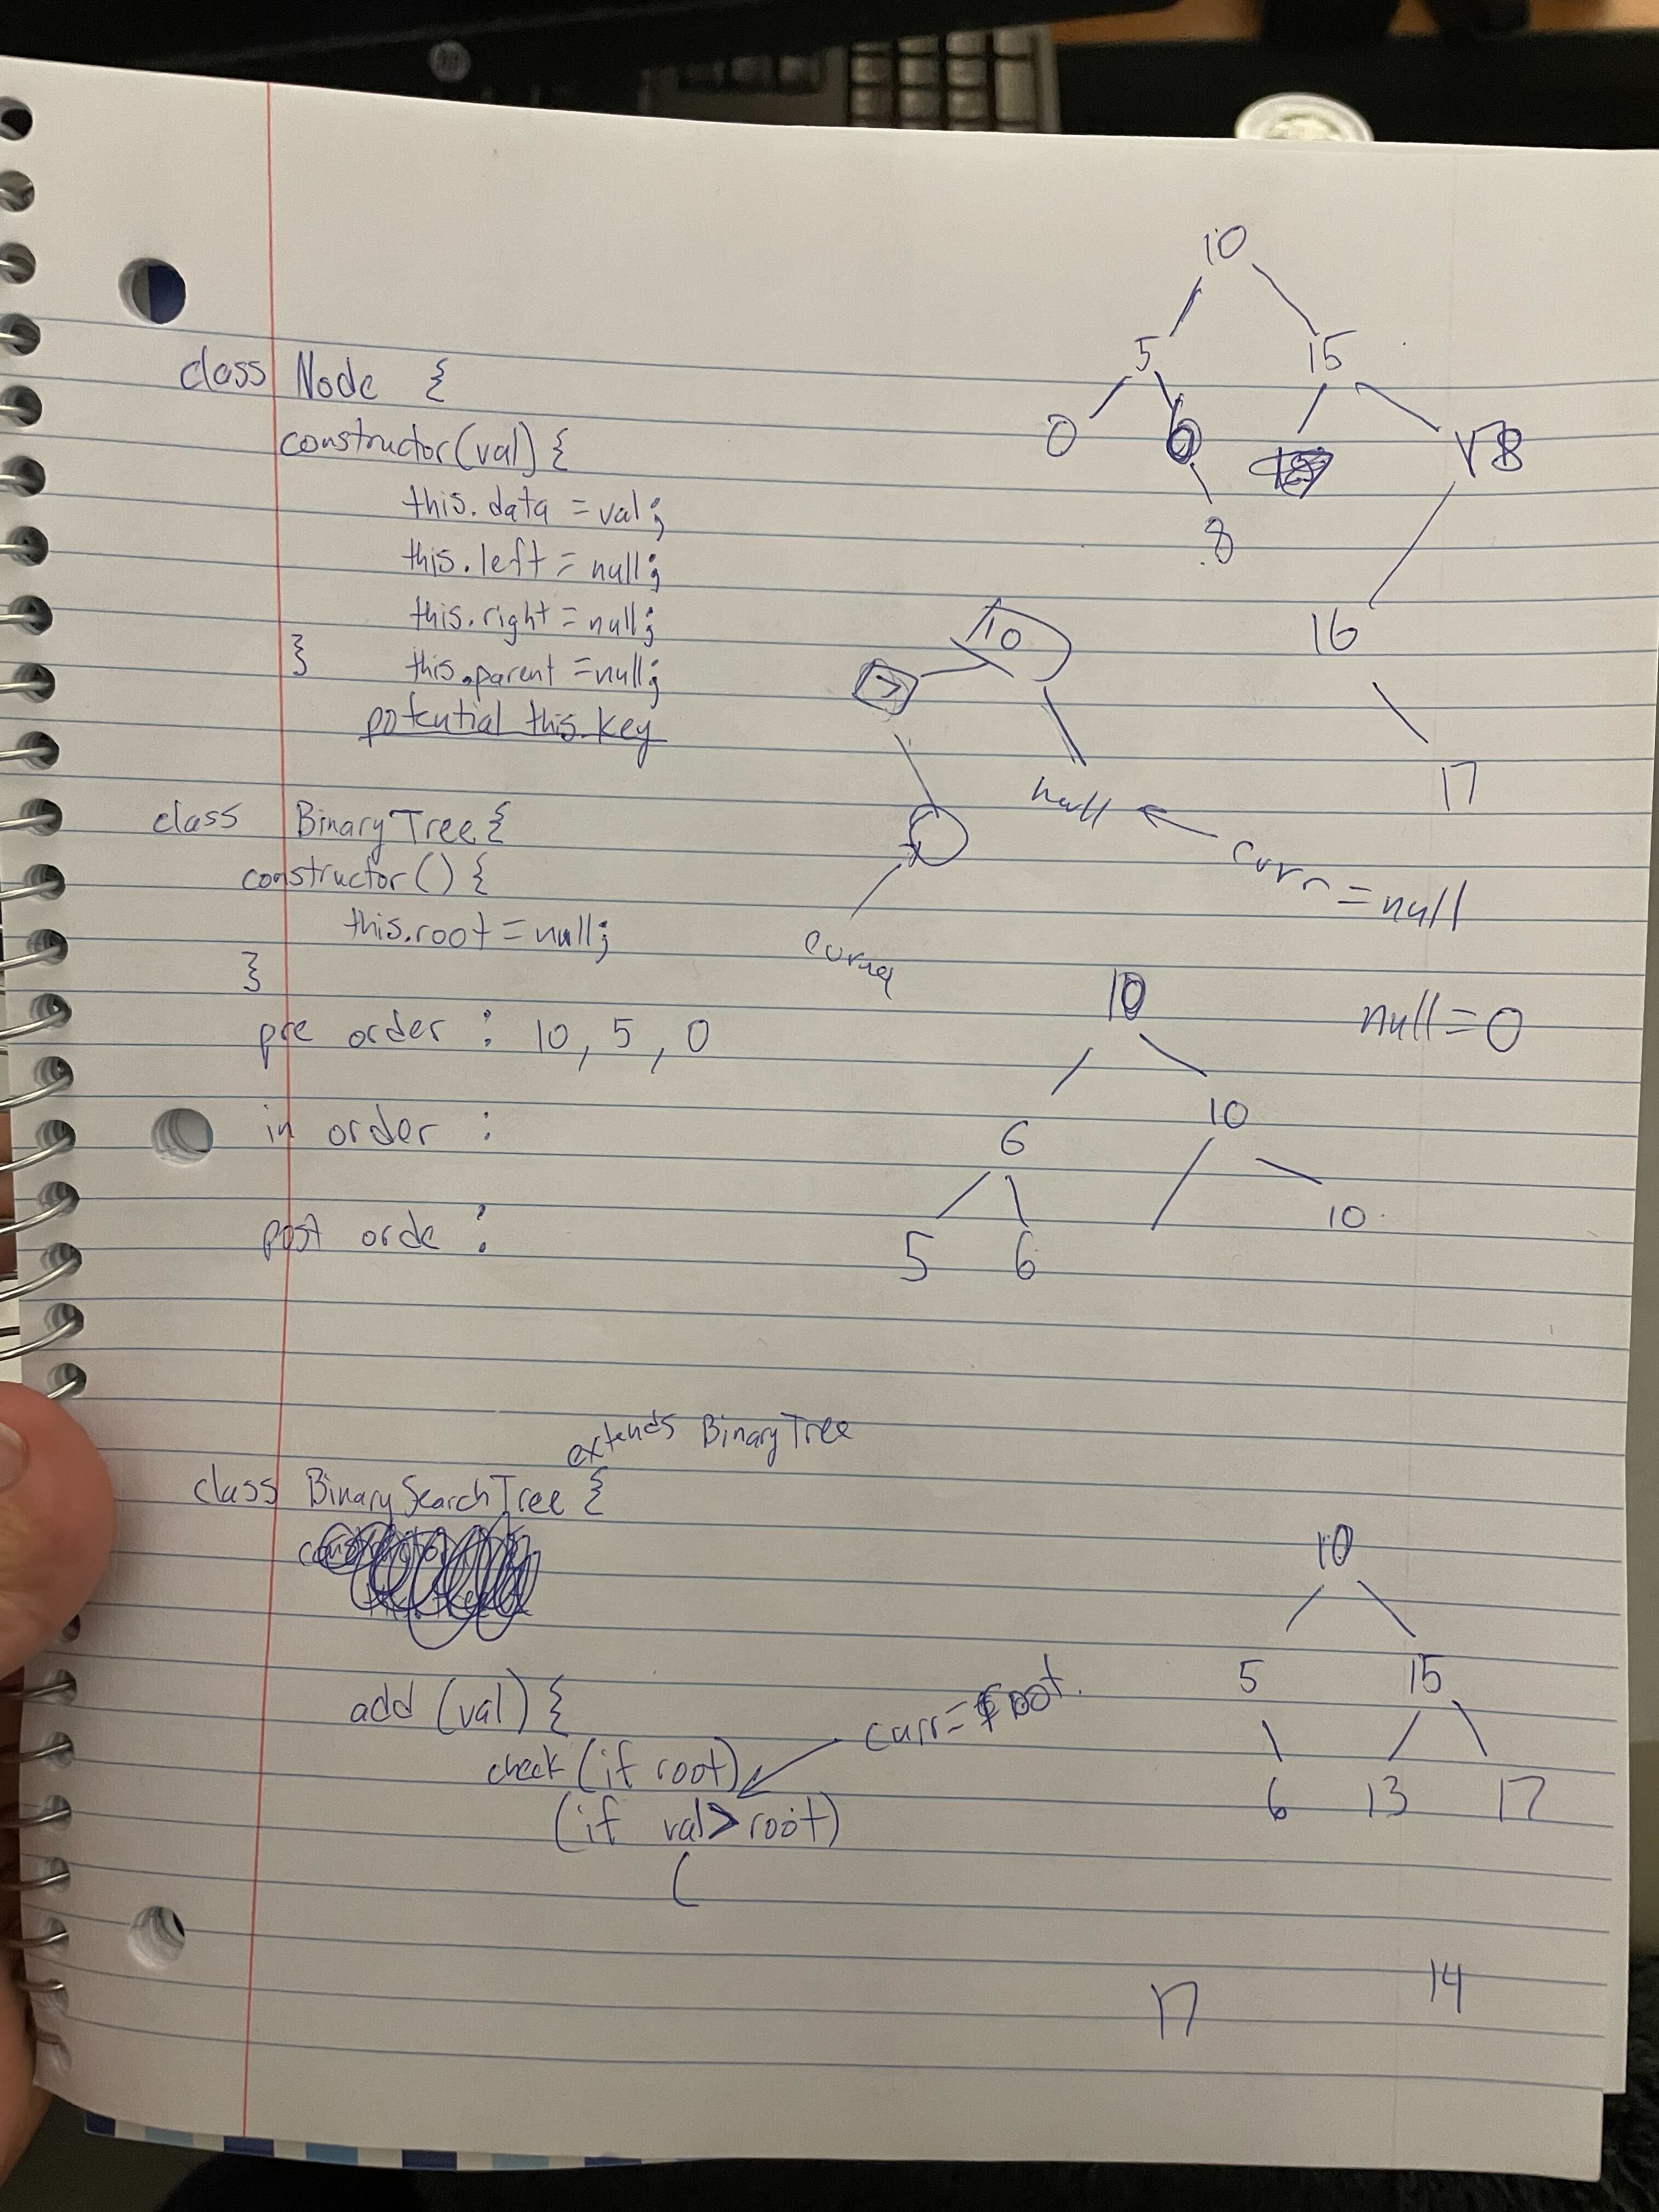 class Node {
constructor(val) {
this.data = val;
this.left = null;
this.right = null;
} this.parent = null;
potential this.key
class BinaryTree {
constructor() {
this.root = null;
}
pre order : 10, 5, 0
in order :
post orde :
extends BinaryTree
class BinarySearchTree {
add (val) {
check (if root)
(if val > root)
(
curr = root.
10
5 15
0 6 18
8
16
17
10
7
null
curr = null
null = 0
10
6 10
5 6 10
10
5 15
6 13 17
17 14